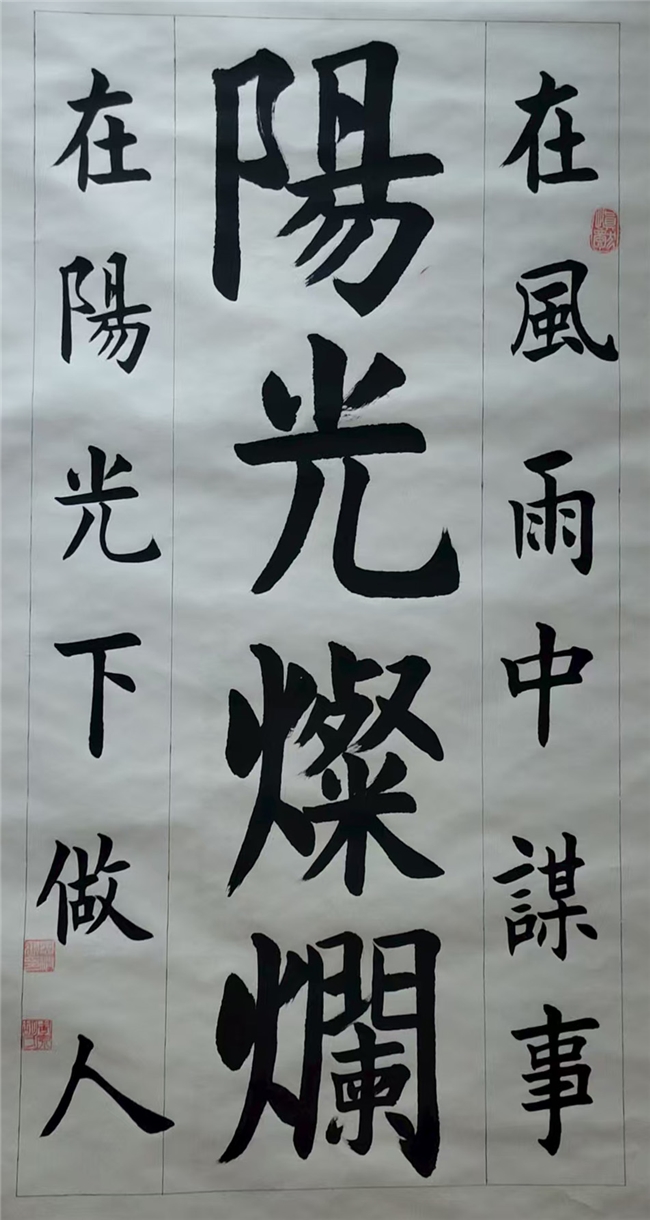 在風雨中謀事
陽光燦爛
在陽光下做人